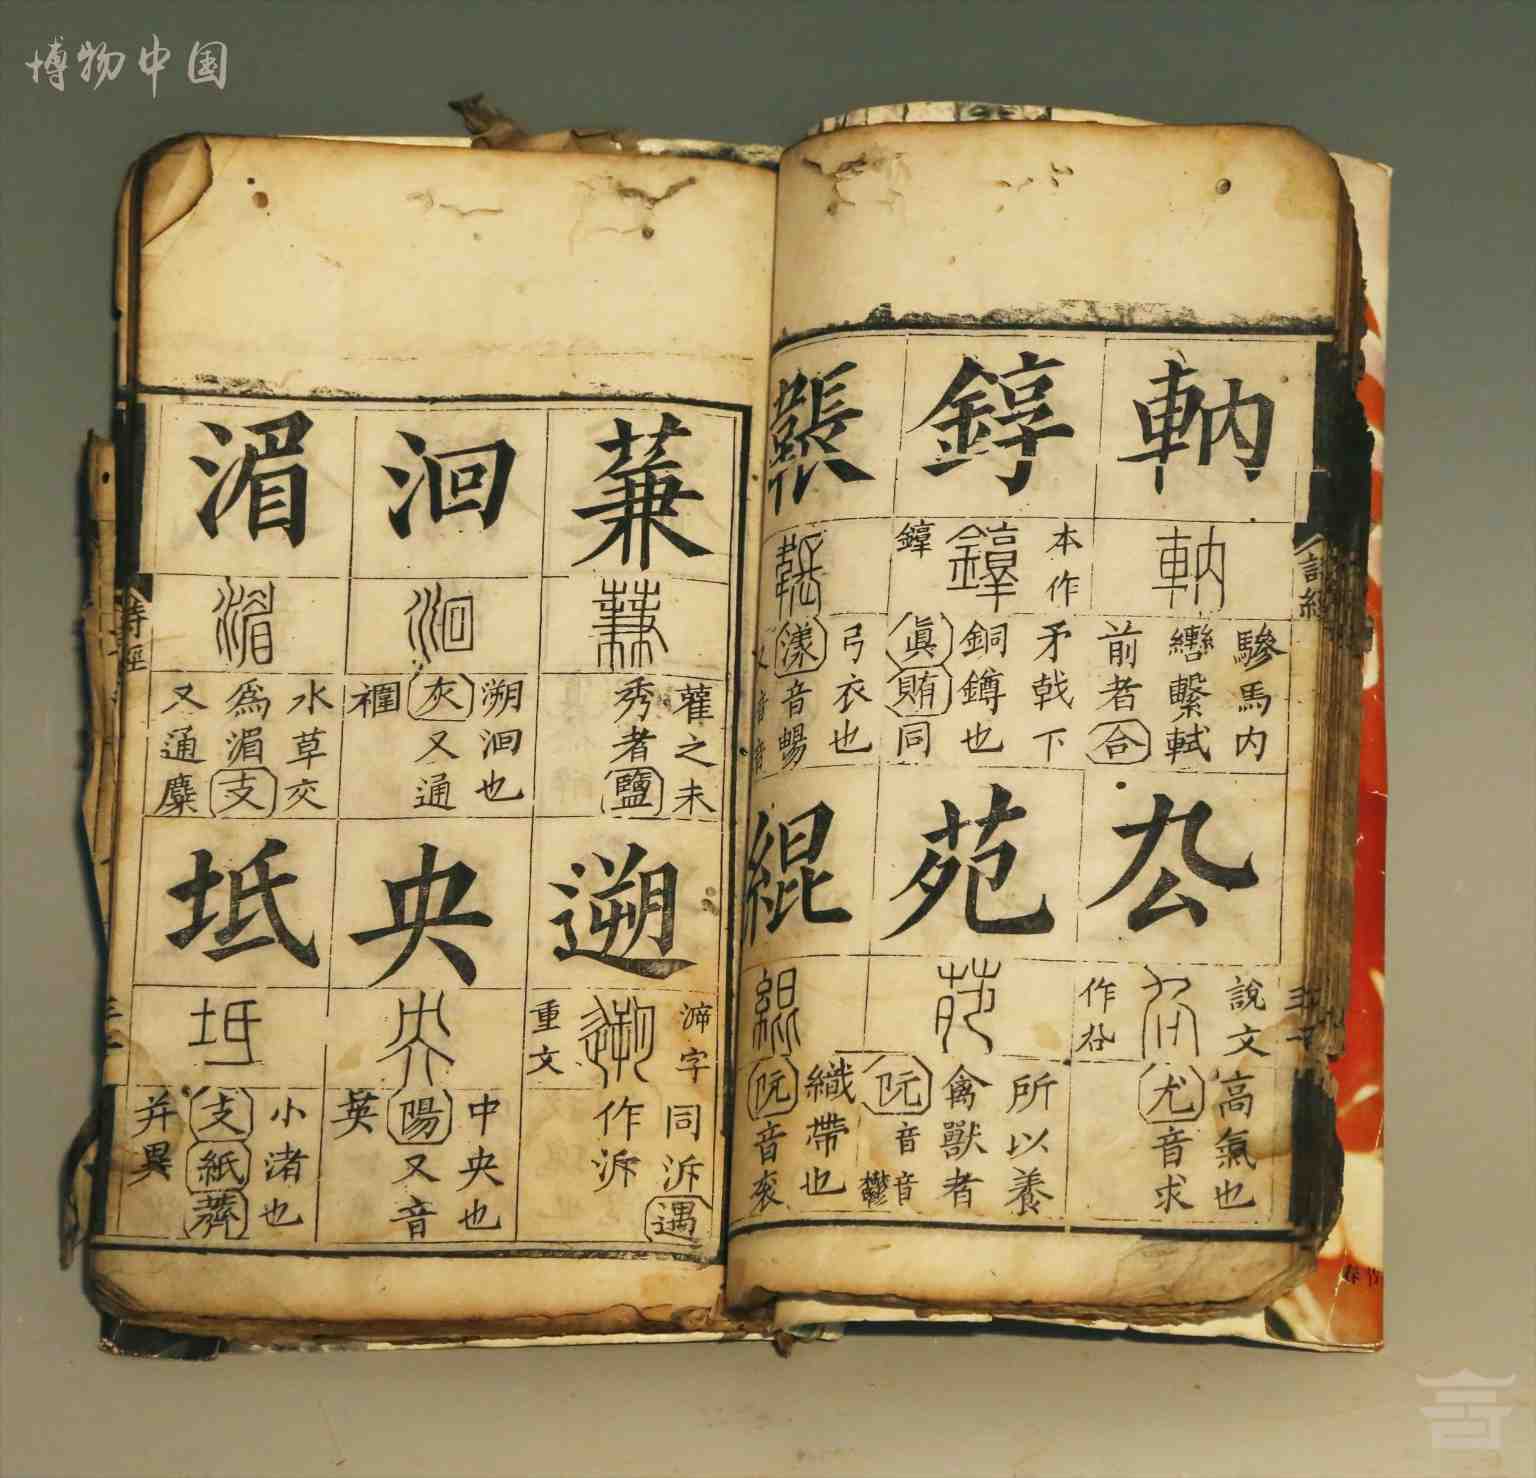 博物中国
軜
軜
驂馬内
轡繫軾
前者合
錞
本作
錞
鐓
矛戟下
銅鐏也
眞賄同
韔
韔
弓衣也
漾音暢
厹
說文
厹
作
高氣也
尤音求
苑
苑
所以養
禽獸者
阮音
音鬱
緄
緄
織帶也
阮音衮
蒹
蒹
雚之未
秀者鹽
洄
洄
溯洄也
灰又通
湄
湄
水草交
爲湄支
又通麋
遡
遡
字
重文
同泝遇
作泝
央
央
中央也
陽又音
英
坻
坻
小渚也
支紙薺
并異
詩經
詩經